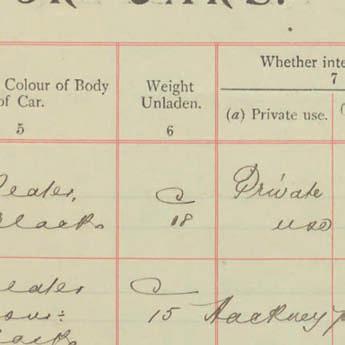 OR CARS.
Colour of Body
of Car.
5
Weight
Unladen.
6
Whether inte
7
(a) Private use.
eater,
Black
C
18
Private
use
eater
C
15
Hackney